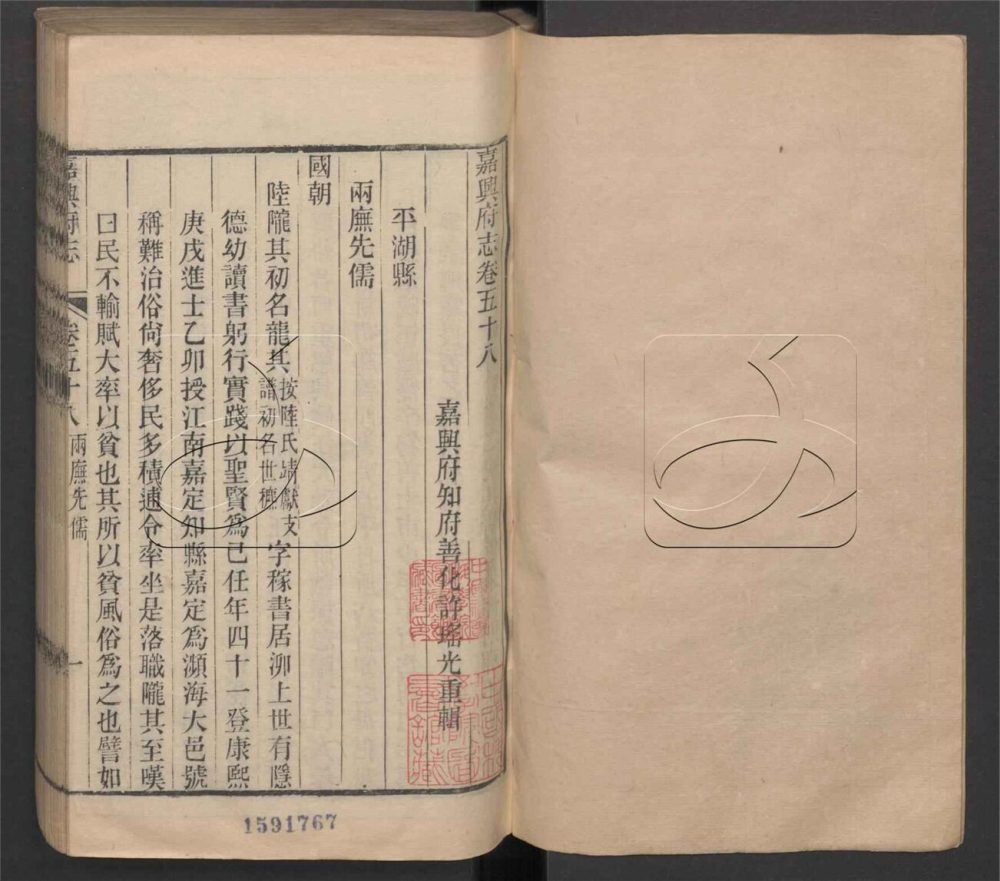 嘉興府志卷五十八
嘉興府知府善化許瑤光重輯
平湖縣
兩廡先儒
國朝
陸隴其初名龍其按陸氏靖獻支譜初名世穮字稼書居泖上世有隱
德幼讀書躬行實踐以聖賢爲己任年四十一登康熙
庚戌進士乙卯授江南嘉定知縣嘉定爲瀕海大邑號
稱難治俗尙奢侈民多積逋令率坐是落職隴其至嘆
曰民不輸賦大率以貧也其所以貧風俗爲之也譬如
嘉興府志 卷五十八 兩廡先儒 一
1591767